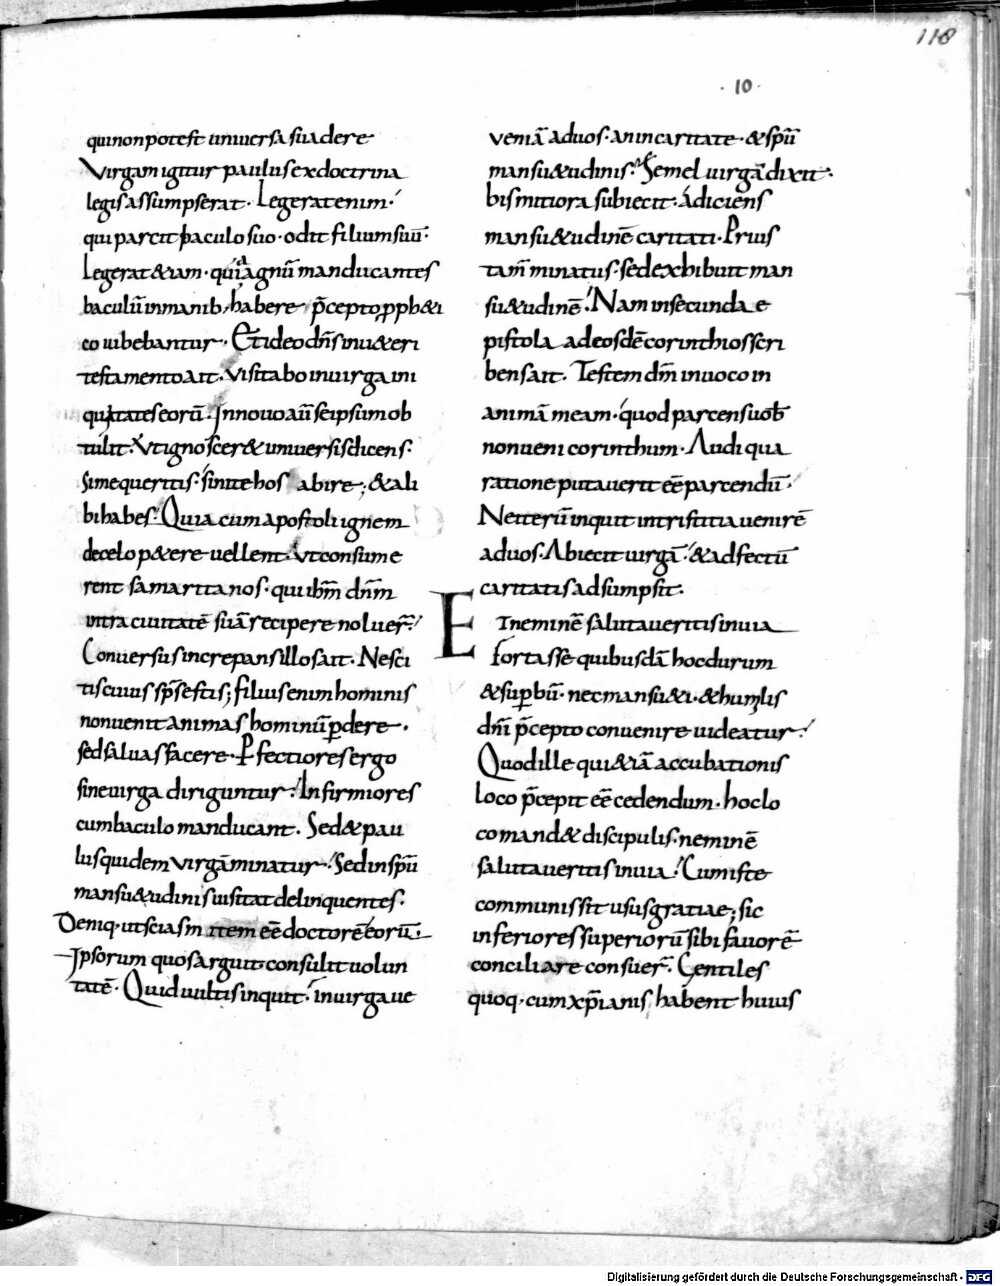 118
·10·
qui non potest universa suadere
Virgam igitur paulus ex doctrina
legis assumpserat. Legerat enim.
qui parcit baculo suo. odit filium suū.
Legerat &iam. quia agnū manducantes
baculū in manib; habere p̄cepto pph&i
co iubebantur. Et ideo dn̄s in u&eri
testamento ait. Visitabo in virga ini
quitates eorū. In novo aū seipsum ob
tulit. Vt ignoscer& universis dicens.
Si me queritis. sinite hos abire; & ali
bi habes. Quia cum apostoli ignem
de celo p&ere vellent. Vt consume
rent samaritanos. qui ihm̄ dnm̄
intra civitatē suā recipere noluer̄.
Conversus increpans illos ait. Nesci
tis cuius sp̄s estis; filius enim hominis
non venit animas hominū p̱dere.
sed salvas facere. P̱fectiores ergo
sine virga diriguntur. Infirmiores
cum baculo manducant. Sed & pau
lus quidem virgā minatur. Sed in spū
mansu&udinis visitat delinquentes.
Deniq; ut scias mitem eē doctorē eorū.
Ipsorum quos arguit consulit volun
tatē. Quid vultis inquit. in virga ve
veniā ad vos. an in caritate. & spū
mansu&udinis. Semel virgā dixit.
bis mitiora subiecit. adiciens
mansu&udinē caritati. Prius
tam̄ minatus. sed exhibuit man
su&udinē. Nam in secunda e
pistola ad eosdē corinthios scri
bens ait. Testem dm̄ invoco in
animā meam. quod parcens vob̄
non veni corinthum. Audi qua
ratione putaverit eē parcendū.
Ne iterū inquit in tristitia venirē
ad vos. Abiecit virgā. & adfectū
caritatis adsumpsit.
Et neminē salutaveritis in via
Fortasse quibusdā hoc durum
& sup̱bū. nec mansu&i. & humilis
dnī p̄cepto convenire videatur.
Quod ille qui &iā accubationis
loco p̄cepit eē cedendum. hoc lo
co mand& discipulis. neminē
salutaveritis in via. Cum iste
communis sit usus gratiae; sic
inferiores superiorū sibi favorē
conciliare consuer̄. Gentiles
quoq; cum xp̄ianis habent huius
Digitalisierung gefördert durch die Deutsche Forschungsgemeinschaft - DFG